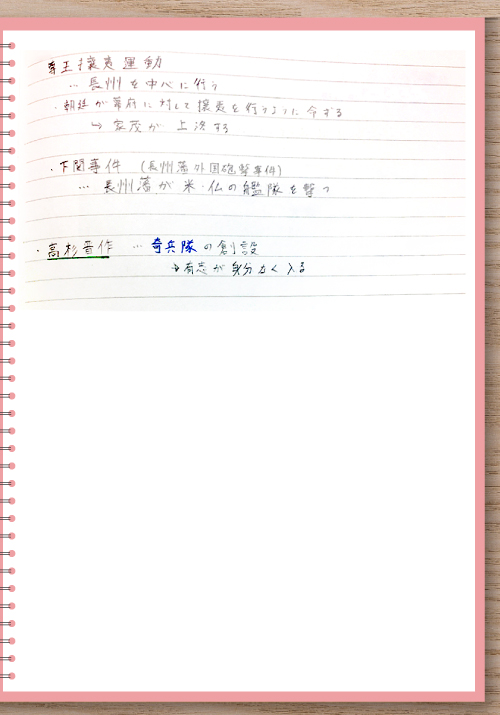 尊王攘夷運動
… 長州を中心に行う
・朝廷が幕府に対して攘夷を行うように命ずる
↳ 家茂が上洛する
・下関事件 (長州藩外国砲撃事件)
… 長州藩が米・仏の艦隊を撃つ
・高杉晋作 … 奇兵隊の創設
↳有志が身分なく入る